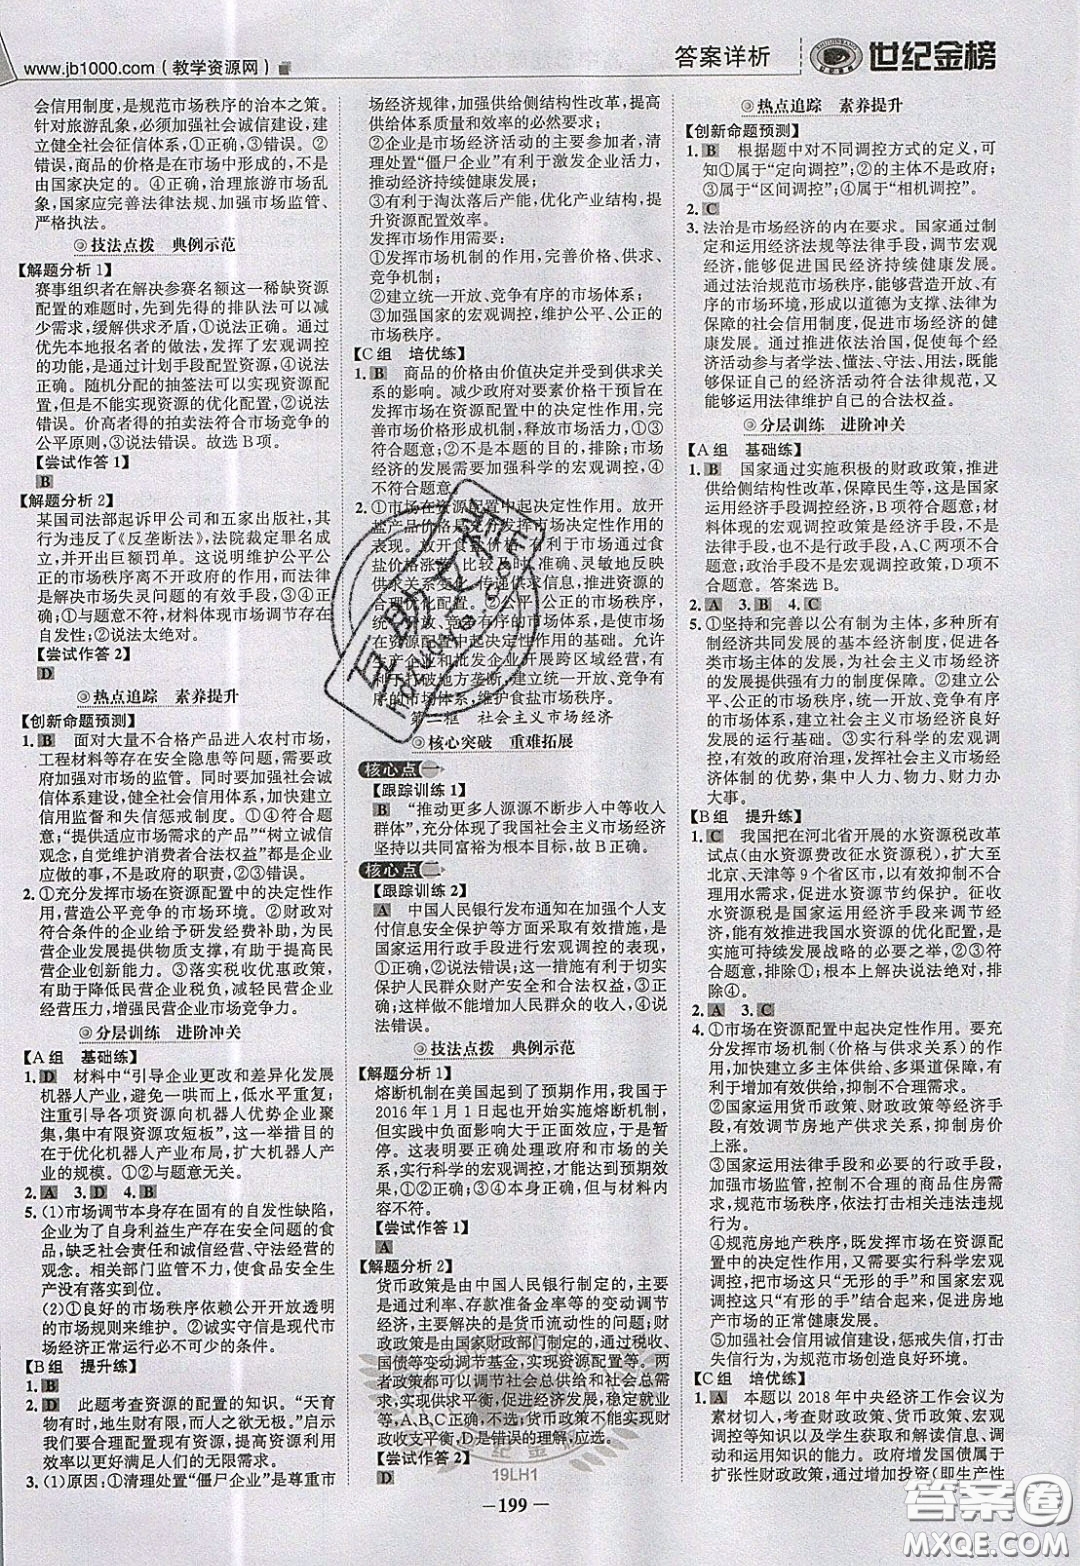 www.jb1000.com（教学资源网）
答案详析
世纪金榜
会信用制度，是规范市场秩序的治本之策。
针对旅游乱象，必须加强社会诚信建设，建
立健全社会征信体系，①正确，③错误。②
错误，商品的价格是在市场中形成的，不是
由国家决定的。④正确，治理旅游市场乱
象，国家应完善法律法规、加强市场监管、
严格执法。
技法点拨　典例示范
【解题分析1】
赛事组织者在解决参赛名额这一稀缺资源
配置的难题时，先到先得的排队法可以减
少需求，缓解供求矛盾，①说法正确。通过
优先本地报名者的做法，发挥了宏观调控
的功能，是通过计划手段配置资源，④说法
正确。随机分配的抽签法可以实现资源配
置，但是不能实现资源的优化配置，②说法
错误。价高者得的拍卖法符合市场竞争的
公平原则，③说法错误。故选B项。
【尝试作答1】
B
【解题分析2】
某国司法部起诉甲公司和五家出版社，其
行为违反了《反垄断法》，法院裁定罪名成
立，并开出巨额罚单。这说明维护公平公
正的市场秩序离不开政府的作用，而法律
是解决市场失灵问题的有效手段，③④正
确；①与题意不符，材料体现市场调节存在
自发性；②说法太绝对。
【尝试作答2】
D
热点追踪　素养提升
【创新命题预测】
1. B　面对大量不合格产品进入农村市场，
工程材料等存在安全隐患等问题，需要政
府加强对市场的监管。同时要加强社会诚
信体系建设，健全社会信用体系，加快建立
信用监督和失信惩戒制度。①④符合题
意；“提供适应市场需求的产品”“树立诚信
观念，自觉维护消费者合法权益”都是企业
应做的事，不是政府的职责，②③错误。
2. ①充分发挥市场在资源配置中的决定性作
用，营造公平竞争的市场环境。②财政对
符合条件的企业给予研发经费补助，为民
营企业发展提供物质支撑，有助于提高民
营企业创新能力。③落实税收优惠政策，
有利于降低民营企业税负，减轻民营企业
经营压力，增强民营企业市场竞争力。
分层训练　进阶冲关
【A组　基础练】
1. D　材料中“引导企业更改和差异化发展
机器人产业，避免一哄而上，低水平重复；
注重引导各项资源向机器人优势企业聚
集，集中有限资源攻短板”，这一举措目的
在于优化机器人产业布局，扩大机器人产
业的规模。①②与题意无关。
2. A　3. D　4. B
5. (1)市场调节本身存在固有的自发性缺陷，
企业为了自身利益生产存在安全问题的食
品，缺乏社会责任和诚信经营、守法经营的
观念。相关部门监管不力，使食品安全生
产没有落实到位。
(2)①良好的市场秩序依赖公开开放透明
的市场规则来维护。②诚实守信是现代市
场经济正常运行必不可少的条件。
【B组　提升练】
1. B
2. D　此题考查资源的配置的知识。“天育
物有时，地生财有限，而人之欲无极。”启示
我们要合理配置现有资源，提高资源利用
效率以更好满足人们的无限需求。
3. (1)原因：①清理处置“僵尸企业”是尊重市
场经济规律，加强供给侧结构性改革，提高
供给体系质量和效率的必然要求；
②企业是市场经济活动的主要参加者，清
理处置“僵尸企业”有利于激发企业活力，
推动经济持续健康发展；
③有利于淘汰落后产能，优化产业结构，提
升资源配置效率。
发挥市场作用需要：
①发挥市场机制的作用，完善价格、供求、
竞争机制；
②建立统一开放、竞争有序的市场体系；
③加强国家的宏观调控，维护公平、公正的
市场秩序。
【C组　培优练】
1. B　商品的价格由价值决定并受到供求关
系的影响。减少政府对要素价格干预旨在
发挥市场在资源配置中的决定性作用，完
善要素市场价格形成机制，①③符合题意；
②不是本题的目的，排除；市场
经济的发展需要加强科学的宏观调控，④
不符合题意。
2. ①市场在资源配置中起决定性作用。放开
盐产品价格是
作用。放开食盐价格，市场通过食
盐价格涨落，比较及时、准确、灵敏地反映
供求关系变化，传递供求信息，实现资源
合理优化配置。②公平、公正的市场秩序
是市场
在资源配置中起作用的基础。允许
生产企业和批发企业开展跨区域经营，有
利于打破地方垄断，维护食盐市场秩序。
第二框　社会主义市场经济
核心突破　重难拓展
核心点一
【跟踪训练1】
B　“推动更多人源源不断步入中等收入
群体”，充分体现了我国社会主义市场经济
坚持以共同富裕为根本目标。故B正确。
核心点二
【跟踪训练2】
A　中国人民银行发布通知在加强个人支
付信息安全保护等方面采取有效措施，是
国家运用行政手段进行宏观调控的表现，
①正确，②说法错误；这一措施有利于切实
保护人民群众财产安全和合法权益，③正
确；这一措施不会增加人民群众的收入，④
说法错误。
技法点拨　典例示范
【解题分析1】
熔断机制在美国起到了预期作用，我国于
2016年1月1日起也开始实施熔断机制，
但实践中负面影响大于正面效应，于是暂
停。这表明要正确处理政府和市场的关
系，实行科学的宏观调控，①②正确；公有
制为主体、共同富裕的根本目标与材料内
容不符。
【尝试作答1】
A
【解题分析2】
货币政策是由中国人民银行制定的，主要
是通过利率、存款准备金率等的变动调节
经济，主要解决的是货币流动性的问题；财
政政策是由国家财政部门制定的，通过税收、
国债等变动调节基金，实现资源配置等。两
者政策都有利于调节社会总供给和社会总
需求的平衡，共同服务于宏观经济调控的目
标，A、B、C正确，不选；货币政策不能实现财
政收支平衡，D是错误的理解，应选。
【尝试作答2】
D
热点追踪　素养提升
【创新命题预测】
1. B　根据题中对不同调控方式的定义，可
知①属于“定向调控”；②的主体不是政府；
③属于“区间调控”；④属于“相机调控”。
2. C
3. 法治是市场经济的内在要求。国家通过制
定和运用经济法规等法律手段，调节宏观
经济，能够促进国民经济持续健康发展。
通过法治规范经济活动，能够营造开放、有
序的市场环境，形成以道德为支撑、法律为
保障的社会信用制度，促进市场经济的健
康发展。推进依法治国，促使每个公民在经
济活动中参与学法、懂法、守法、用法，从而
能够保证自己的经济活动符合法律规范，又
能够运用法律维护自己的合法权益。
分层训练　进阶冲关
【A组　基础练】
1. B　国家通过实施积极的财政政策，推进
供给侧结构性改革，保障民生等，这是国家
运用经济手段调控经济，B符合题意；材
料体现的宏观调控政策是经济手段，不是
法律手段，也不是行政手段，A、C两项不合
题意；政治手段不是宏观调控手段，D项不
合题意。答案选B。
2. A　3. B　4. A
5. ①坚持和完善以公有制为主体，多种所有
制经济共同发展的基本经济制度，促进了
各类市场主体的发展，为社会主义市场经济
的发展提供了有力的制度保障。②建立公
平、公正的市场经济体制，完善市场规则，
规范市场经济秩序是市场经济良好
发展的运行基础。③实行科学的宏观调
控，有效的政府治理，发挥社会主义市场经
济体制的优势，集中人力、物力、财力办
大事。
【B组　提升练】
1. C　我国把在河北省开展的水资源税改革
试点（由水资源费改征水资源税），扩大至
北京、天津等9个省区市，以抑制不合理
用水需求，促进水资源节约保护。征收水
资源税是国家运用经济手段来调节经
济，能有效推进我国水资源的优化配置，是
实施可持续发展战略的必要之举，②③符
合题意，排除①；根本上解决说法绝对，排
除④。
2. A　3. C
4. ①市场在资源配置中起决定性作用。要充
分发挥市场机制（价格与供求关系）的作
用，加快建设多主体供给、多渠道保障，有
利于增加有效供给，抑制不合理需求。
②国家运用货币政策、财政政策等经济手
段，有效调节房地产供求关系，抑制房价
上涨。
③国家运用法律手段和必要的行政手段，
实行精准调控，抑制不合理的商品住房需
求，规范市场秩序，依法打击相关违法违规
行为。
④规范房地产秩序，既要发挥市场在资源
配置中的决定性作用，又要发挥国家宏观
调控，把市场这只“无形的手”和国家宏观
调控这只“有形的手”结合起来，促进房地产
市场的正常健康发展。
⑤加强社会信用建设，惩戒失信，打击市场
失信行为，为规范市场创造良好环境。
【C组　培优练】
1. A　本题以2018年中央经济工作会议为
素材切入，考查财政政策、货币政策、宏观
调控的知识以及学生的理解能力、分析能
力、解决问题的能力。政府增发国债属于
扩张性财政政策，通过增加投资（即生产性
19LH1
—199—
答案圈
MXQE.COM